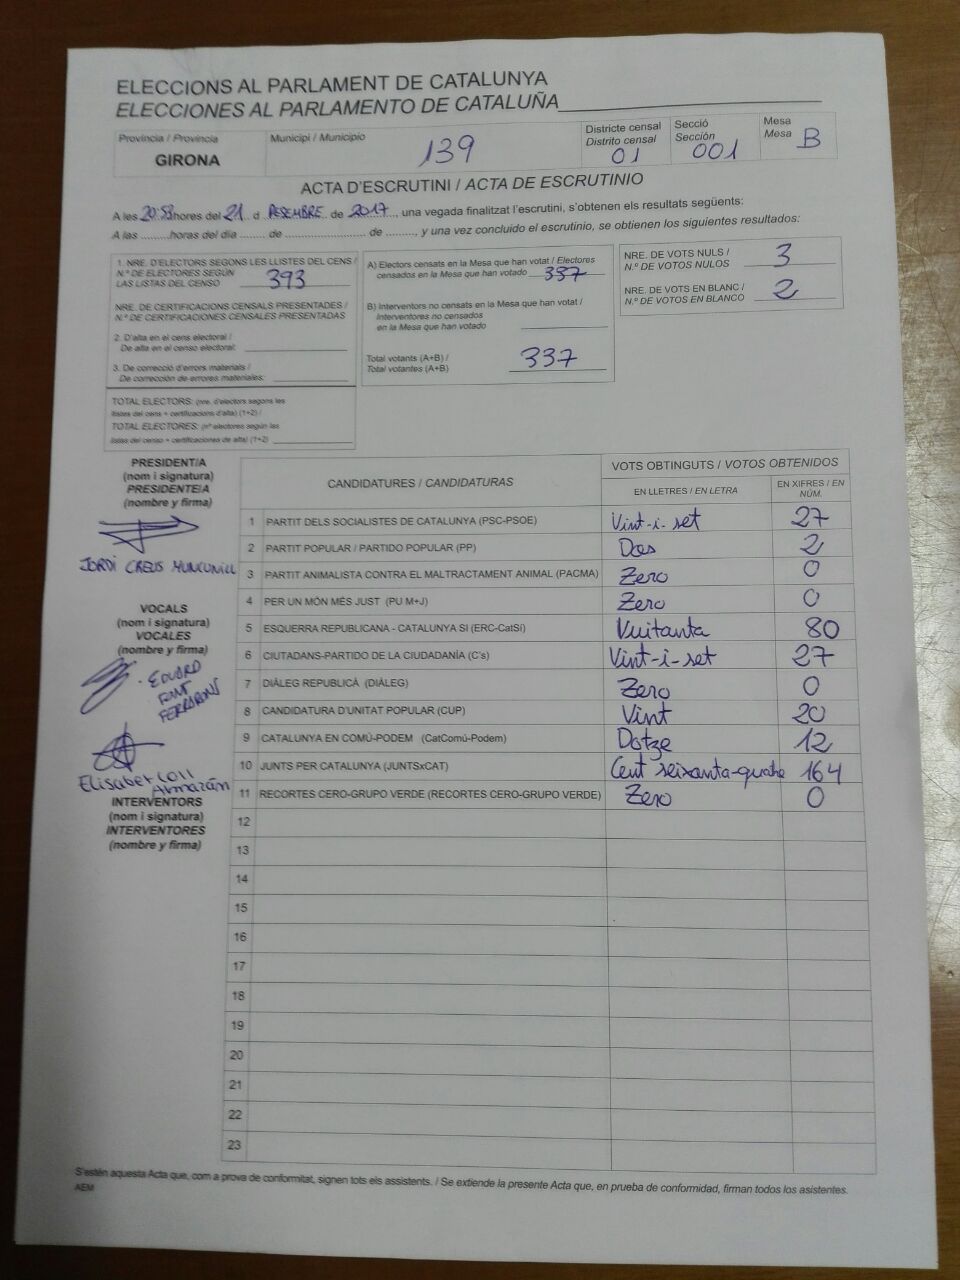 ELECCIONS AL PARLAMENT DE CATALUNYA
ELECCIONES AL PARLAMENTO DE CATALUÑA
Província / Provincia
GIRONA
Municipi / Municipio
139
Districte censal
Distrito censal
01
Secció
Sección
001
Mesa
Mesa
B
ACTA D'ESCRUTINI / ACTA DE ESCRUTINIO
A les 20:53 hores del 21 d DESEMBRE de 2017, una vegada finalitzat l'escrutini, s'obtenen els resultats següents:
A las ..........horas del día .......... de .......................... de ........., y una vez concluido el escrutinio, se obtienen los siguientes resultados:
1. NRE. D'ELECTORS SEGONS LES LLISTES DEL CENS /
N.º DE ELECTORES SEGÚN
LAS LISTAS DEL CENSO 393
NRE. DE CERTIFICACIONS CENSALS PRESENTADES /
N.º DE CERTIFICACIONES CENSALES PRESENTADAS
2. D'alta en el cens electoral /
De alta en el censo electoral:
3. De correcció d'errors materials /
De corrección de errores materiales:
TOTAL ELECTORS: (nre. d'electors segons les
llistes del cens + certificacions d'alta) (1+2) /
TOTAL ELECTORES: (nº electores según las
listas del censo + certificaciones de alta) (1+2)
A) Electors censats en la Mesa que han votat / Electores
censados en la Mesa que han votado 337
B) Interventors no censats en la Mesa que han votat /
Interventores no censados
en la Mesa que han votado
Total votants (A+B) /
Total votantes (A+B)
337
NRE. DE VOTS NULS /
N.º DE VOTOS NULOS 3
NRE. DE VOTS EN BLANC /
N.º DE VOTOS EN BLANCO 2
PRESIDENT/A
(nom i signatura)
PRESIDENTE/A
(nombre y firma)
JORDI CREUS MUNCUNILL
VOCALS
(nom i signatura)
VOCALES
(nombre y firma)
EDUARD
FONT
FERRARONS
Elisabet Coll
Almazán
INTERVENTORS
(nom i signatura)
INTERVENTORES
(nombre y firma)
CANDIDATURES / CANDIDATURAS
VOTS OBTINGUTS / VOTOS OBTENIDOS
EN LLETRES / EN LETRA
EN XIFRES / EN NÚM.
1 PARTIT DELS SOCIALISTES DE CATALUNYA (PSC-PSOE) Vint-i-set 27
2 PARTIT POPULAR / PARTIDO POPULAR (PP) Dos 2
3 PARTIT ANIMALISTA CONTRA EL MALTRACTAMENT ANIMAL (PACMA) Zero 0
4 PER UN MÓN MÉS JUST (PU M+J) Zero 0
5 ESQUERRA REPUBLICANA - CATALUNYA SI (ERC-CatSí) Vuitanta 80
6 CIUTADANS-PARTIDO DE LA CIUDADANÍA (C's) Vint-i-set 27
7 DIÀLEG REPUBLICÀ (DIÀLEG) Zero 0
8 CANDIDATURA D'UNITAT POPULAR (CUP) Vint 20
9 CATALUNYA EN COMÚ-PODEM (CatComú-Podem) Dotze 12
10 JUNTS PER CATALUNYA (JUNTSxCAT) Cent seixanta-quatre 164
11 RECORTES CERO-GRUPO VERDE (RECORTES CERO-GRUPO VERDE) Zero 0
12
13
14
15
16
17
18
19
20
21
22
23
S'estén aquesta Acta que, com a prova de conformitat, signen tots els assistents. / Se extiende la presente Acta que, en prueba de conformidad, firman todos los asistentes.
AEM